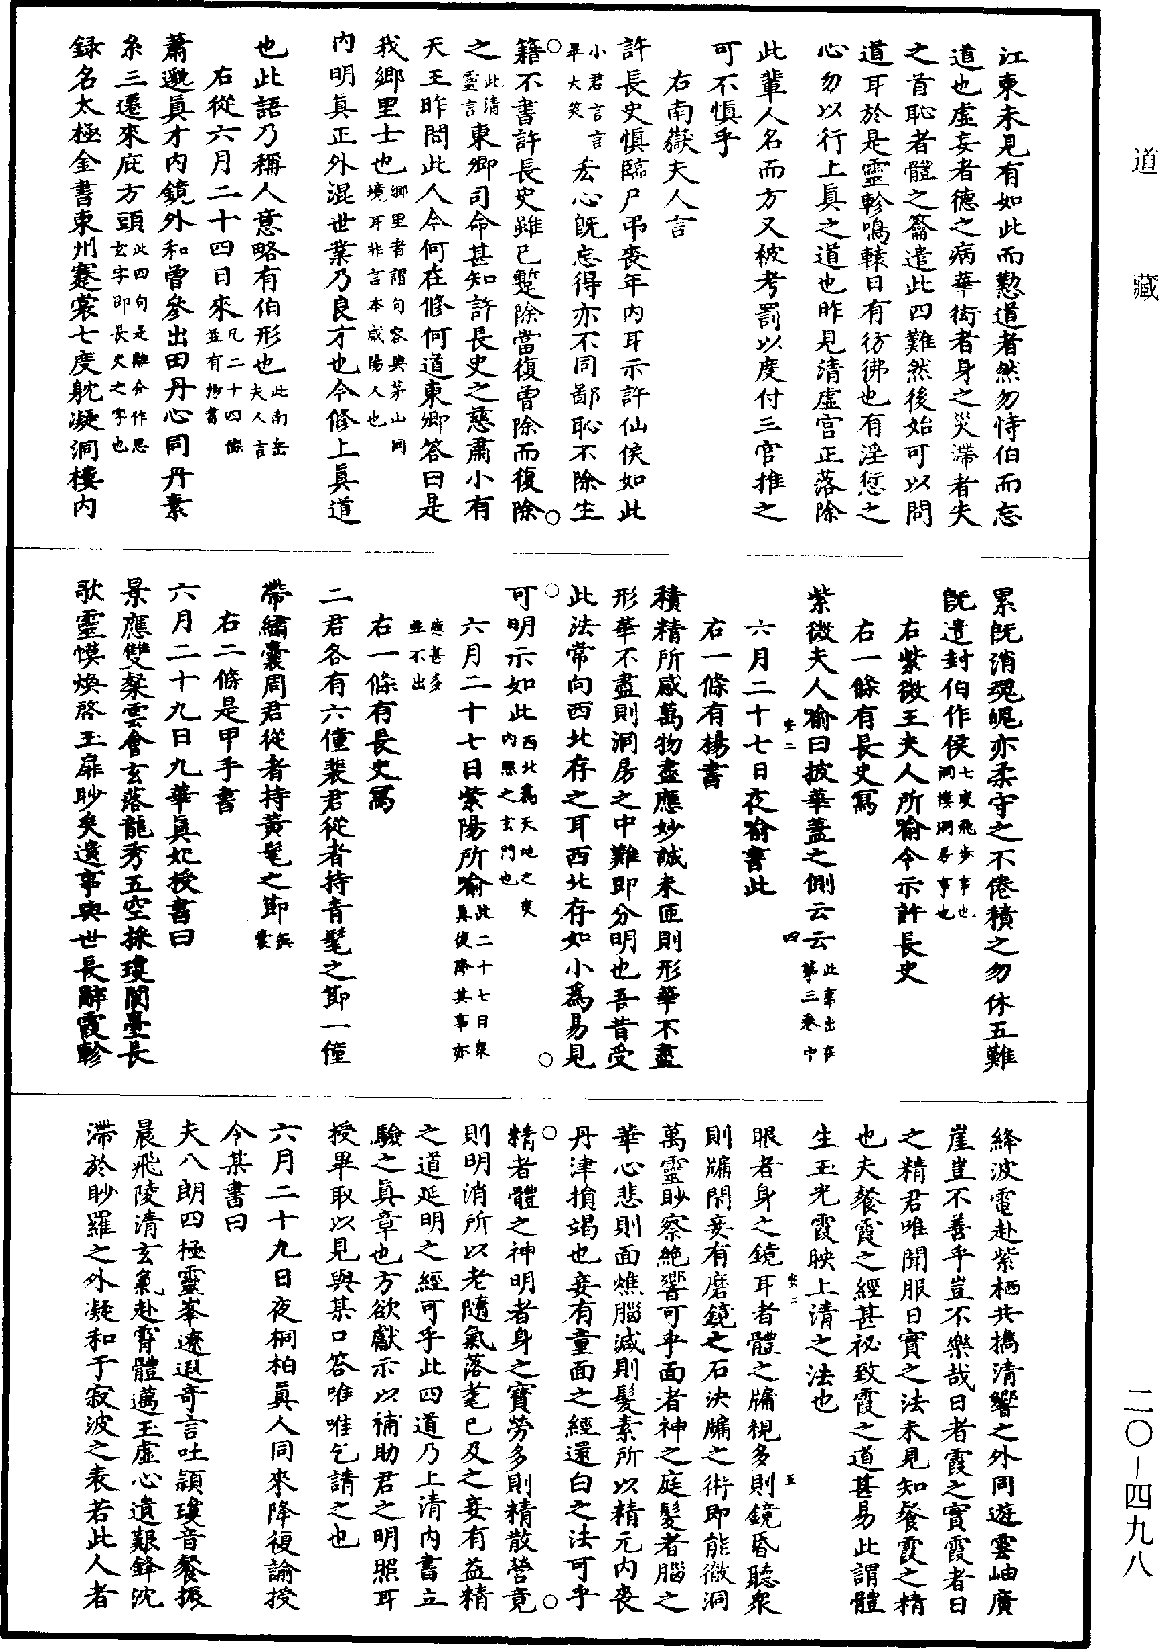 道藏
江東未見有如此而懃道者然勿恃伯而忘
道也虛妄者德之病華衒者身之災滯者失
之首恥者體之籥遣此四難然後始可以問
道耳於是靈軫鳴轅日有彷彿也有淫愆之
心勿以行上真之道也昨見清虛宮正落除
此輩人名而方又被考罰以度付三官推之
可不慎乎
右南嶽夫人言
許長史慎臨尸弔喪年內耳示許仙侯如此
小君言言畢大笑 玄心既忘得亦不同鄙恥不除生
籍不書許長史雖已蹔除當復曾除而復除
之此清靈言東卿司命甚知許長史之慈肅小有
天王昨問此人今何在修何道東卿答曰是
我鄉里士也鄉里者謂句容與茅山同境耳非言本咸陽人也
內明真正外混世業乃良才也今修上真道
也此語乃稱人意略有伯形也此南岳夫人言
右從六月二十四日來凡二十四條並有楊書
蕭邈真才內鏡外和曾參出田丹心同丹素
糸三遷來庇方頭此四句是離合作思玄字即長史之字也
録名太極金書東州蹇裳七度躭凝洞樓內
累既消魂魄亦柔守之不倦積之勿休五難
既遣封伯作侯七度飛步事也洞樓洞房事也
右紫微王夫人所喻令示許長史
右一條有長史寫
紫微夫人喻曰披華蓋之側云云此事出在第三卷中
安二 四
六月二十七日夜喻書此
右一條有楊書
積精所感萬物盡應妙誠未匝則形華不盡
形華不盡則洞房之中難即分明也吾昔受
此法常向西北存之耳西北存如小爲易見
可明示如此西北爲天地之突內照之玄門也
六月二十七日紫陽所喻此二十七日衆真復降其事亦
應甚多並不出
右一條有長史寫
二君各有六僮裴君從者持青髦之節一僮
帶繡囊周君從者持黃髦之節無囊
右二條是甲手書
六月二十九日九華真妃授書曰
景應雙粲雲會玄落龍秀五空採瓊閬臺長
歌靈㦬煥啓玉扉眇矣遺事與世長辭霞軫
絳波電赴紫栖共攜清響之外同遊雲岫廣
崖豈不善乎豈不樂哉日者霞之實霞者日
之精君唯聞服日實之法未見知餐霞之精
也夫餐霞之經甚祕致霞之道甚易此謂體
生玉光霞映上清之法也
安二 五
眼者身之鏡耳者體之牖視多則鏡昏聽衆
則牖閉妾有磨鏡之石決牖之術即能徹洞
萬靈眇察絶響可乎面者神之庭髮者腦之
華心悲則面燋腦減則髮素所以精元內喪
丹津損竭也妾有童面之經還白之法可乎
精者體之神明者身之寶勞多則精散營竟
則明消所以老隨氣落耄已及之妾有益精
之道延明之經可乎此四道乃上清內書立
驗之真章也方欲獻示以補助君之明照耳
授畢取以見與某口答唯唯乞請之也
六月二十九日夜桐柏真人同來降復諭授
令某書曰
夫八朗四極靈峯遼遐奇言吐穎瓊音餐振
晨飛陵清玄氣赴霄體邁王虛心遺艱鋒沈
滯於眇羅之外凝和于寂波之表若此人者
二〇-四九八